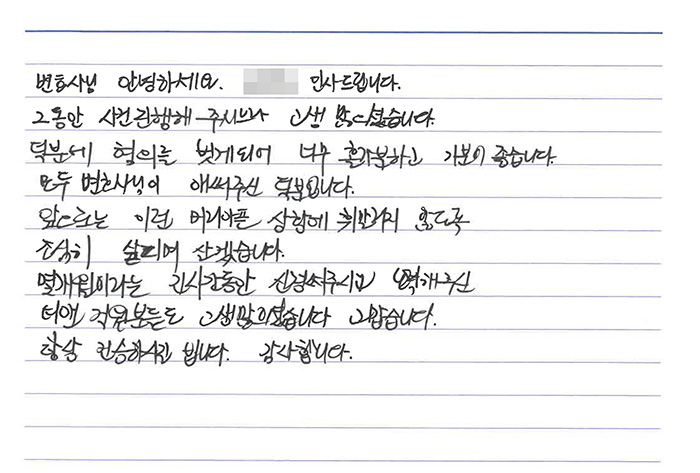 변호사님 안녕하세요. 인사드립니다.
그동안 사건진행해 주시느라 고생 많으셨습니다.
덕분에 혐의를 벗게되어 너무 홀가분하고 기분이 좋습니다.
모두 변호사님이 애써주신 덕분입니다.
앞으로는 이런 머리아픈 상황에 휘말리지 않도록
조심히 살피며 살겠습니다.
몇개월이라는 긴시간동안 신경써주시고 노력해주신
태연 직원분들도 고생많으셨습니다 고맙습니다.
항상 건승하시길 빕니다. 감사합니다.